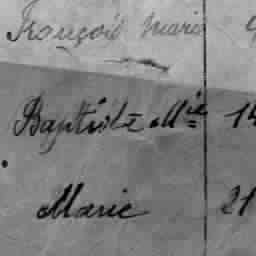 François Marie
Baptiste Mie 14
Marie 21